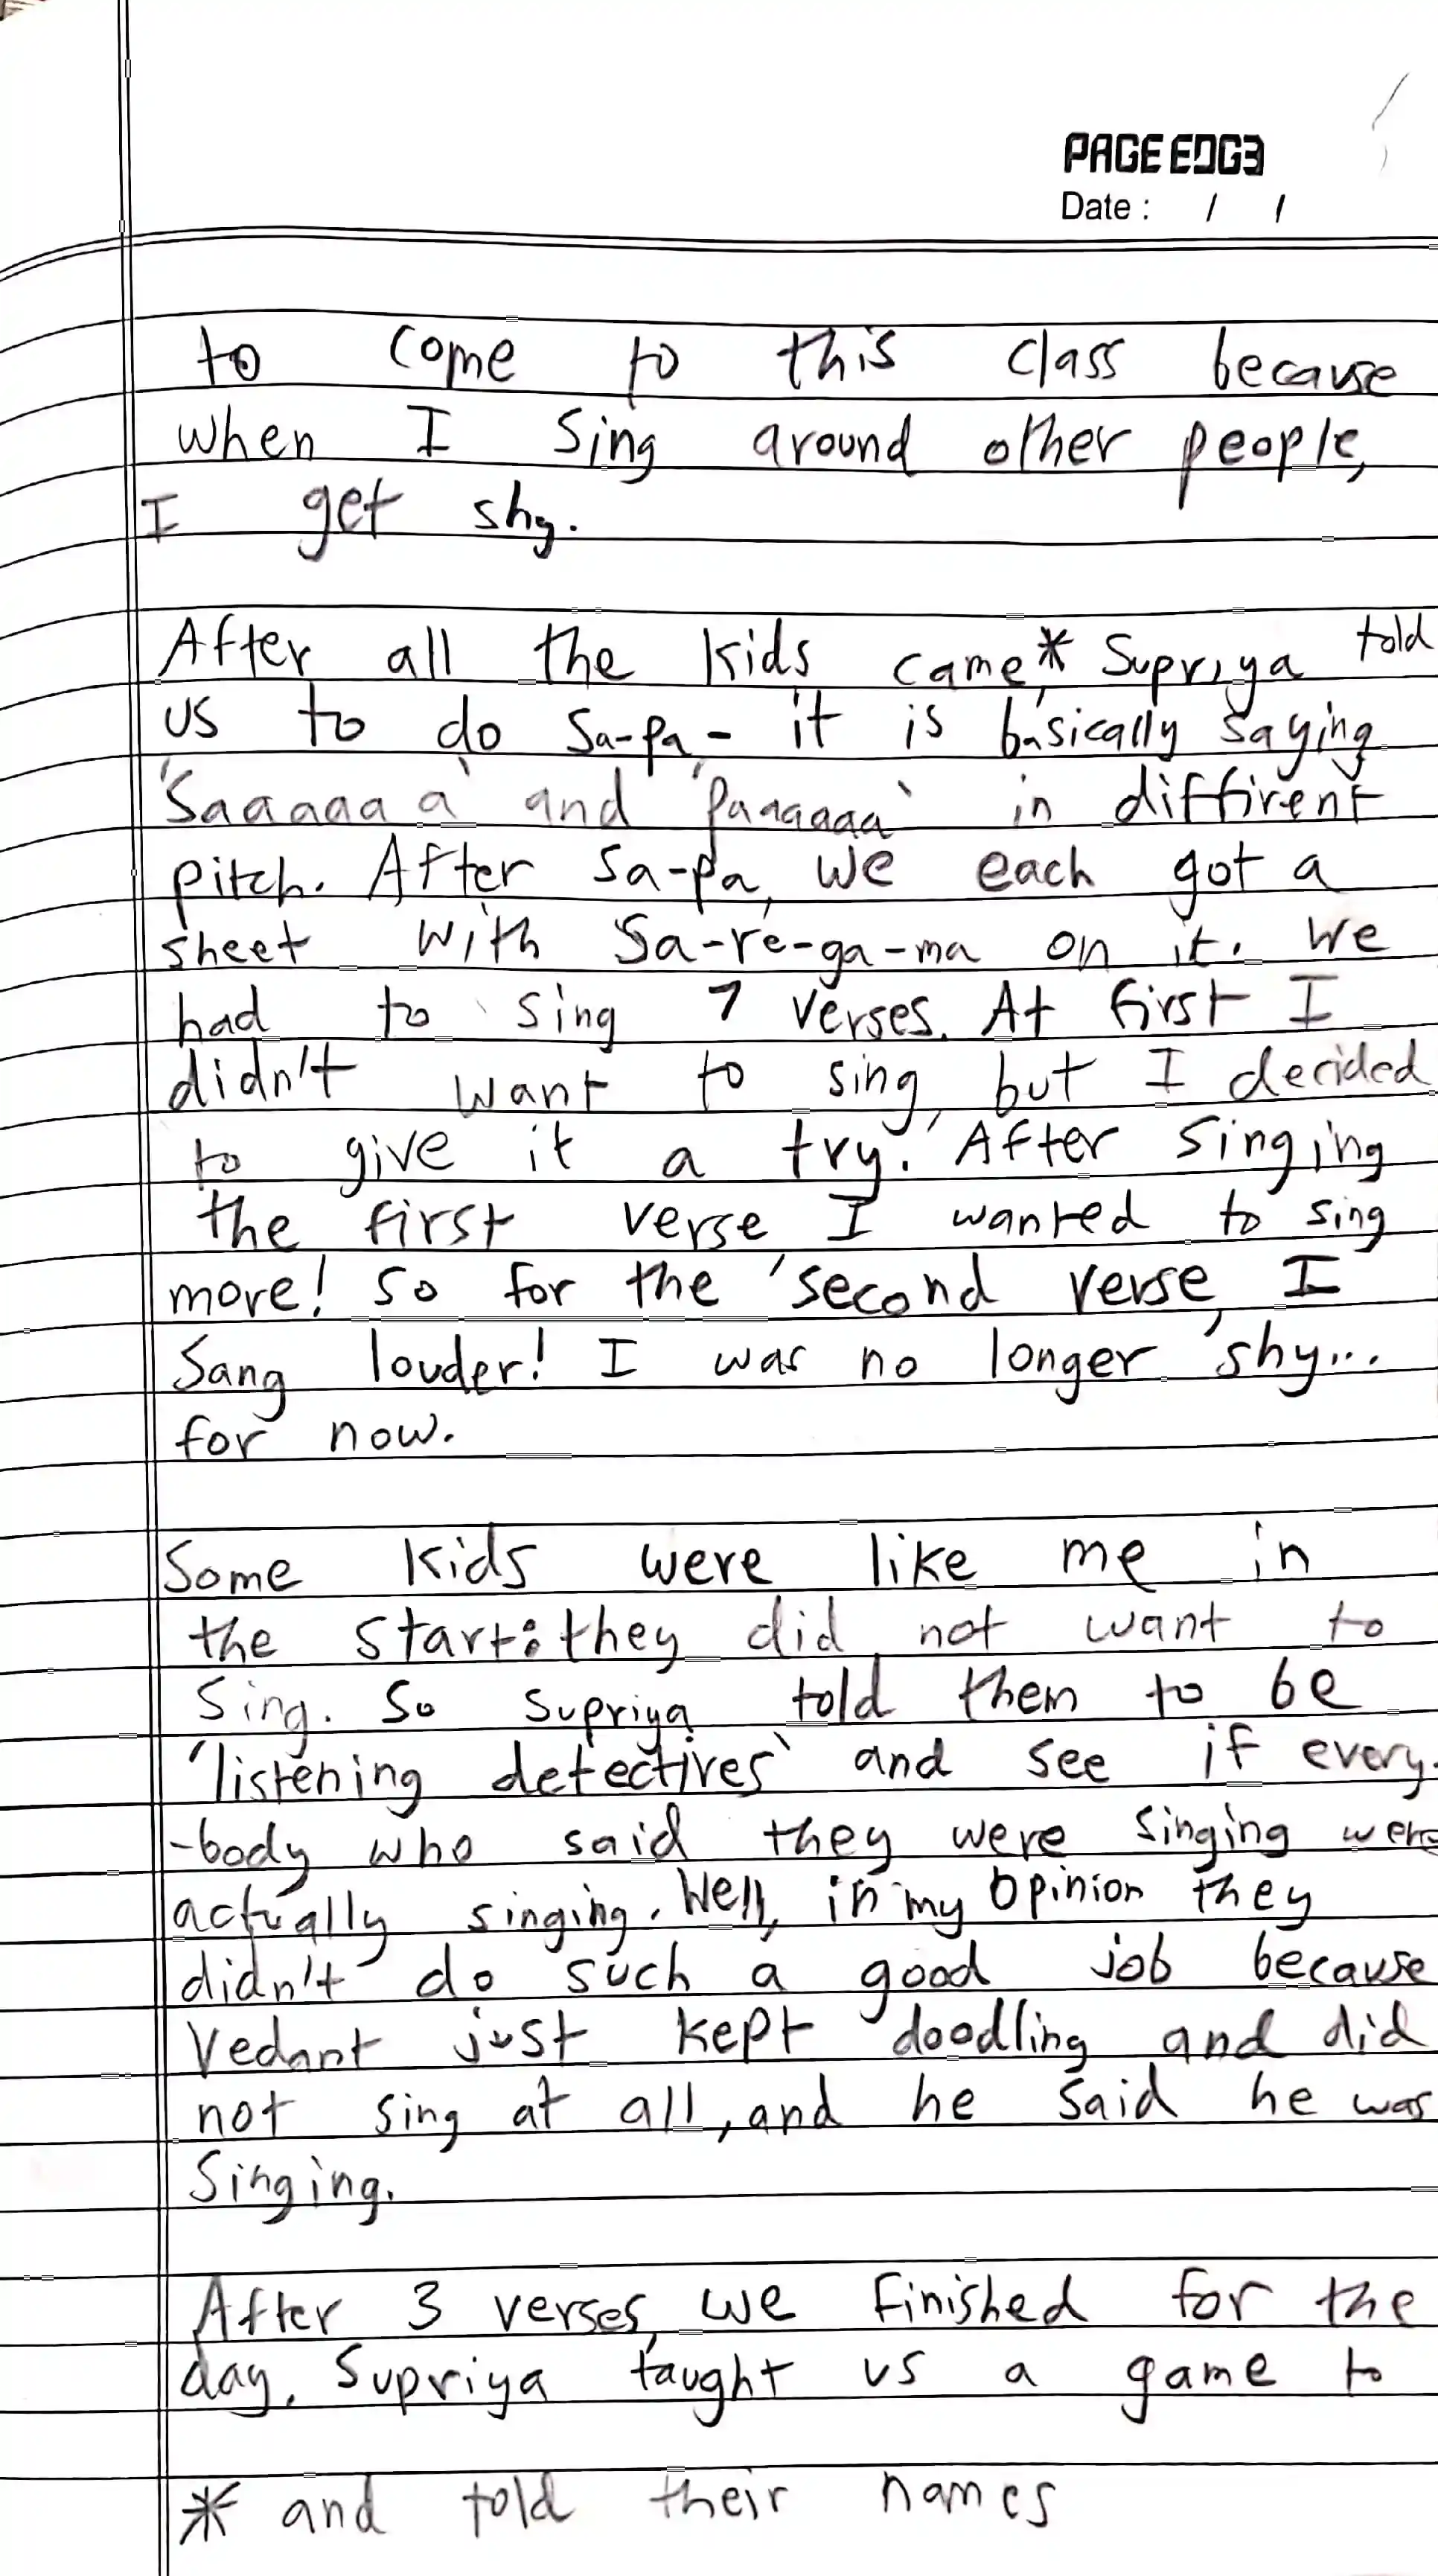 PAGE EDG3
Date : / /
to come to this class because
when I sing around other people,
I get shy.
After all the kids came,* Supriya told
us to do sa-pa- it is basically saying
'Saaaaa a' and 'Paaaaaa' in diffirent
pitch. After sa-pa, we each got a
sheet with Sa-re-ga-ma on it. We
had to sing 7 verses. At first I
didn't want to sing, but I decided
to give it a try. After singing
the first verse I wanted to sing
more! So for the second verse, I
Sang louder! I was no longer shy...
for now.
Some kids were like me in
the start: they did not want to
Sing. So Supriya told them to be
'listening detectives' and see if every-
-body who said they were singing were
actually singing. Well, in my opinion they
didn't do such a good job because
Vedant just kept doodling and did
not sing at all, and he said he was
Singing.
After 3 verses, we finished for the
day. Supriya taught us a game to
* and told their names